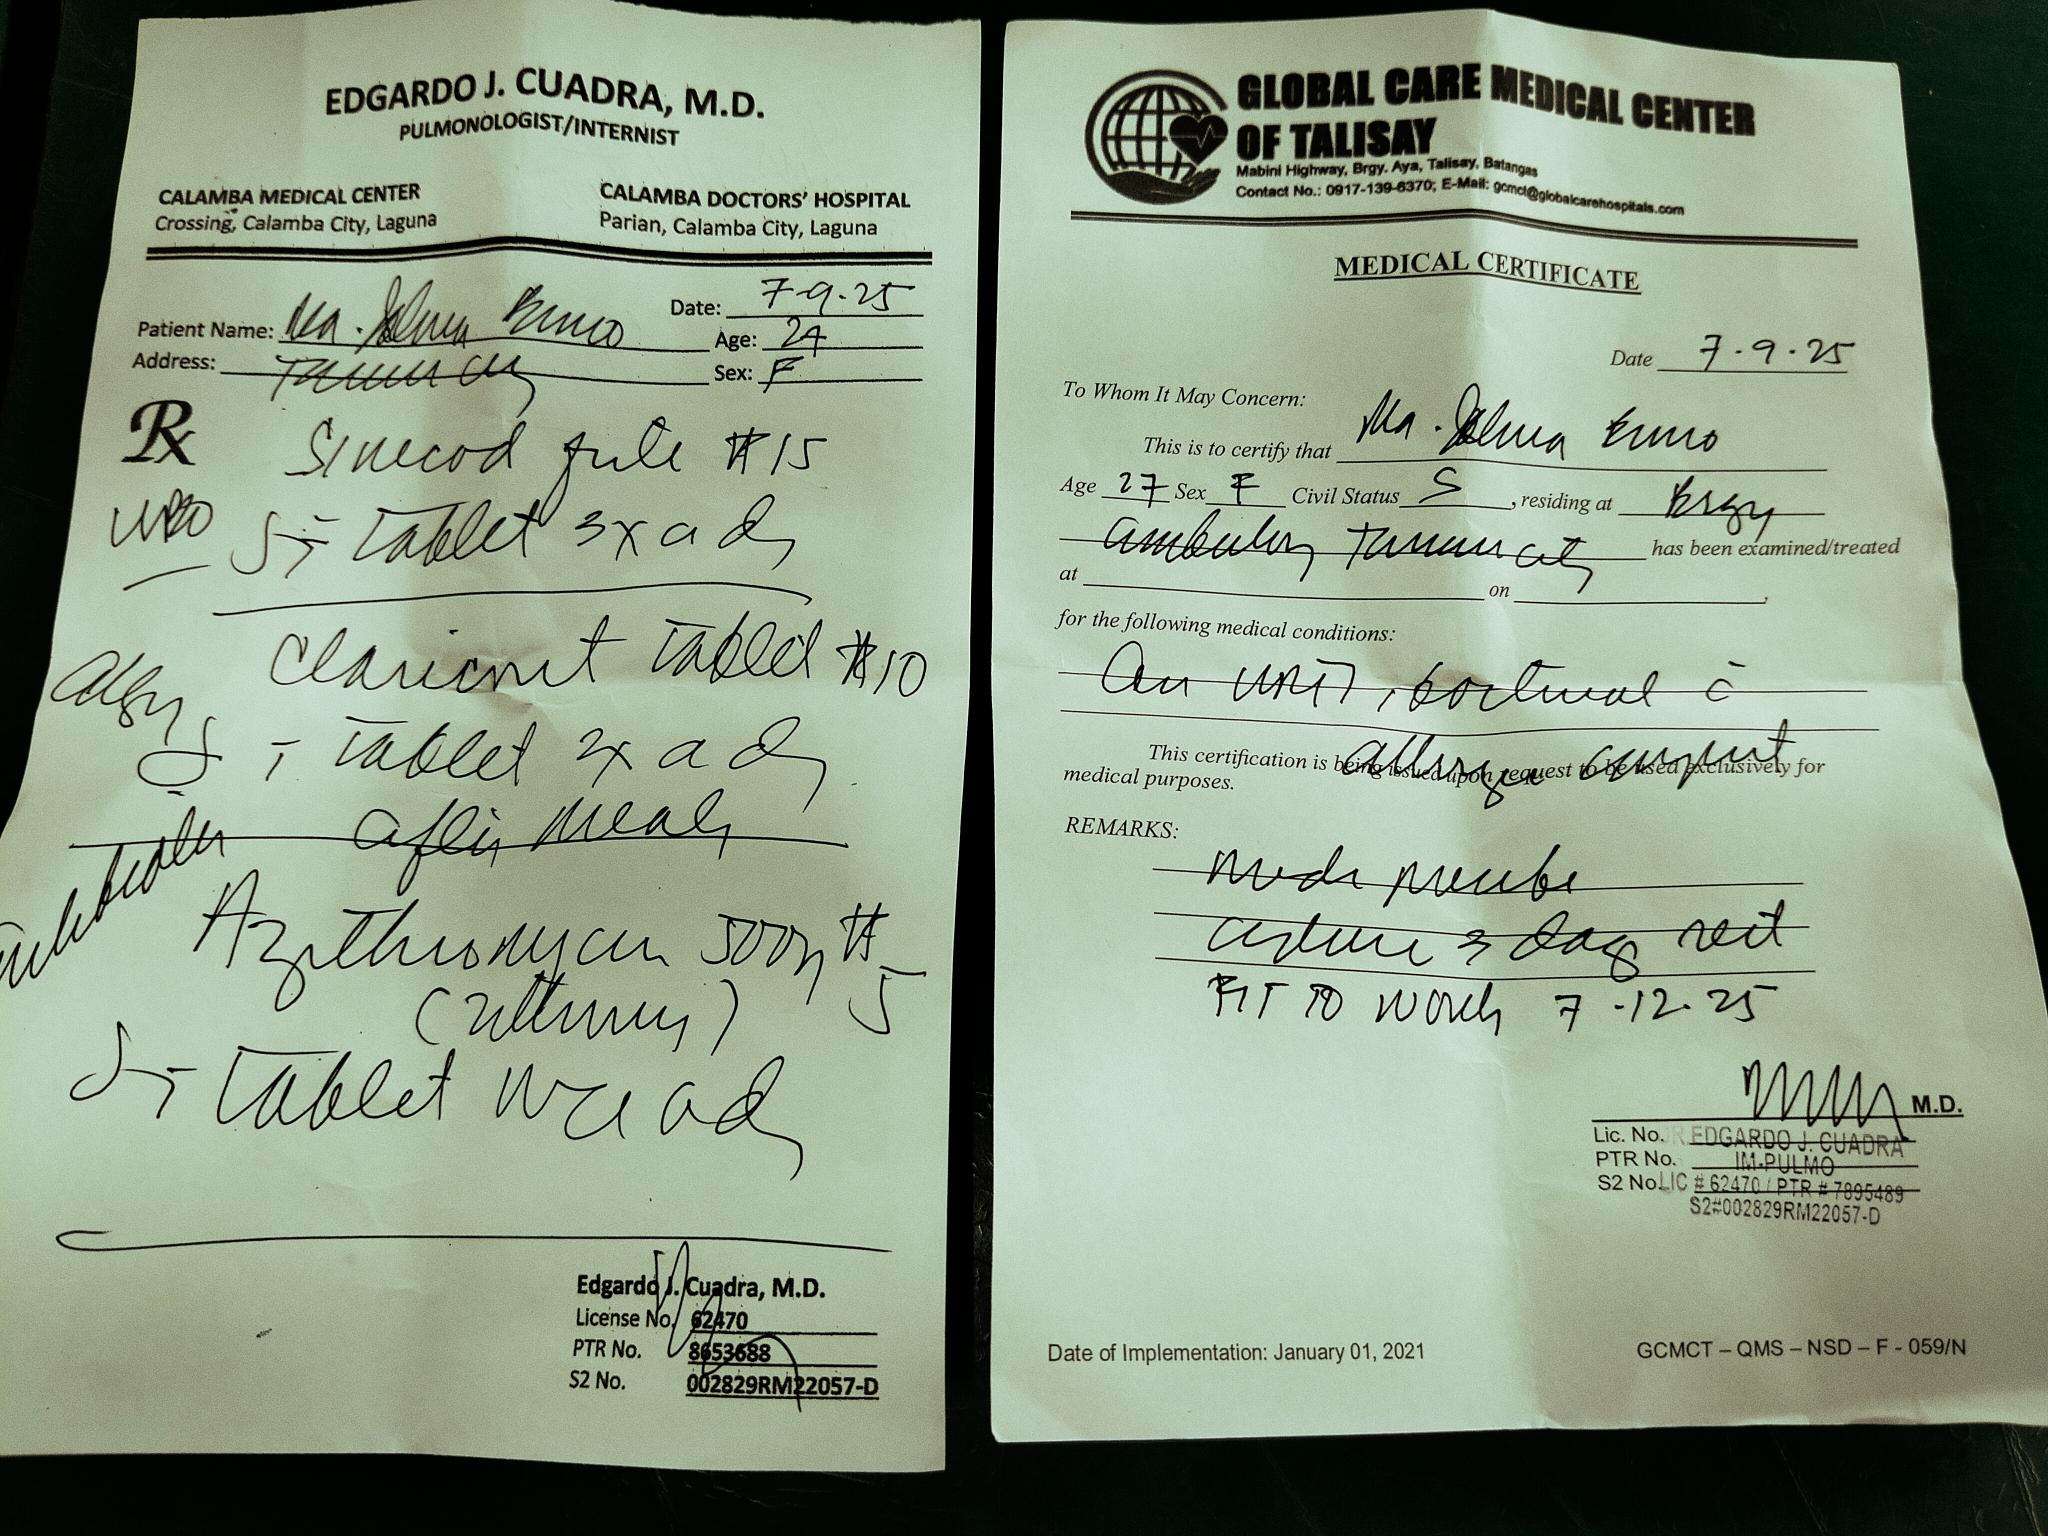 EDGARDO J. CUADRA, M.D.
PULMONOLOGIST/INTERNIST
CALAMBA MEDICAL CENTER
Crossing, Calamba City, Laguna
CALAMBA DOCTORS' HOSPITAL
Parian, Calamba City, Laguna
Patient Name: Ma.
Date: 7-9-25
Age:
Address:
Sex: F
Rx
Sinecod #15
S; - Tablet 3x a day
Tablet #10
S - Tablet 2x a day
after meals
Azithromycin 500mg #5
S; - Tablet a day
Edgardo J. Cuadra, M.D.
License No. 62470
PTR No. 8653688
S2 No. 002829RM22057-D
GLOBAL CARE MEDICAL CENTER
OF TALISAY
Mabini Highway, Brgy. Aya, Talisay, Batangas
Contact No.: 0917-139-6370; E-Mail: gcmct@globalcarehospitals.com
MEDICAL CERTIFICATE
Date 7-9-25
To Whom It May Concern:
This is to certify that Ma.
Age 27 Sex F Civil Status S, residing at Brgy
has been examined/treated
at on
for the following medical conditions:
This certification is being issued upon request to be used exclusively for
medical purposes.
REMARKS:
3 day rest
FIT TO WORK 7-12-25
M.D.
Lic. No. DR EDGARDO J. CUADRA
PTR No. IM-PULMO
S2 No. LIC # 62470 / PTR # 7895489
S2#002829RM22057-D
Date of Implementation: January 01, 2021
GCMCT – QMS – NSD – F - 059/N